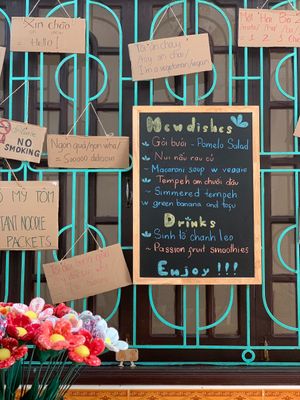 Xin chào
= Hello!
Tôi ăn chay/
Any ăn chai/
I'm a vegetarian/vegan
Một Hai Ba
1 2 3
NO
SMOKING
Ngon quá/ngon wha/
= Sooooo delicious
MY TOM
INSTANT NOODLE
PACKETS
New dishes
Gỏi bưởi - Pomelo Salad
Nui nấu rau củ
- Macaroni soup w veggie
Tempeh om chuối đậu
~ Simmered tempeh
w green banana and tofu
Drinks
Sinh tố chanh leo
~ Passion fruit smoothies
Enjoy !!!